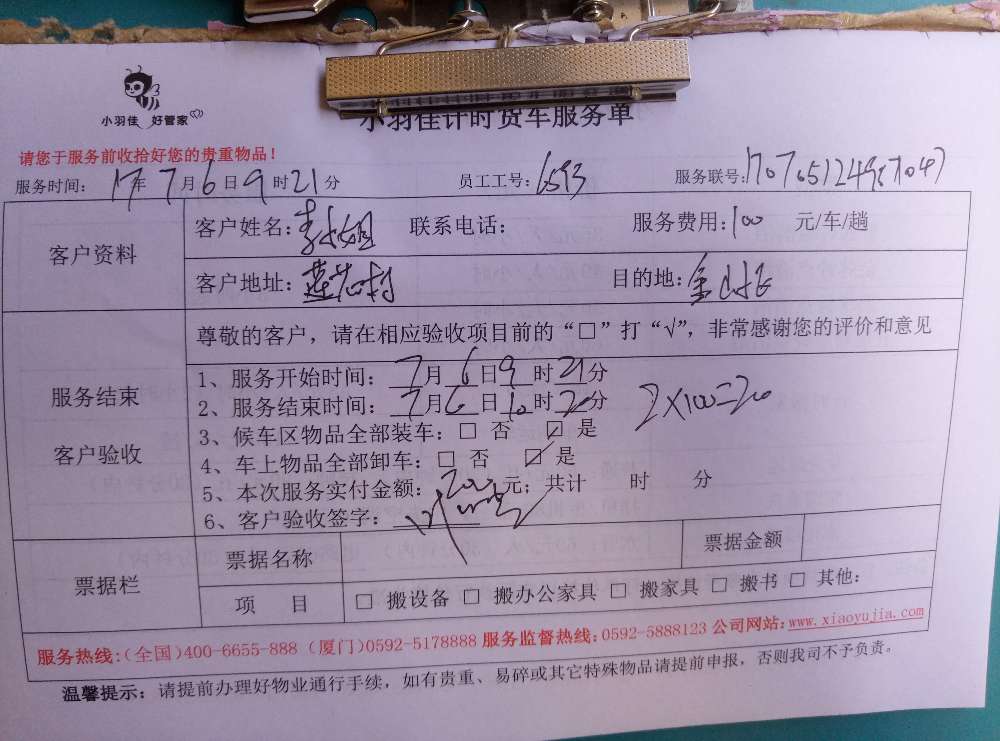 小羽佳 好管家
小羽佳计时货车服务单
请您于服务前收拾好您的贵重物品！
服务时间： 17年 7月 6日 9时 21分 员工工号： 服务联号：
客户资料
客户姓名：李小姐 联系电话： 服务费用：100 元/车/趟
客户地址：莲花村 目的地：
服务结束
客户验收
尊敬的客户，请在相应验收项目前的“□”打“√”，非常感谢您的评价和意见
1、服务开始时间：7月6日9时21分
2、服务结束时间：7月6日10时20分
2×100=200
3、候车区物品全部装车：□ 否 ☑ 是
4、车上物品全部卸车：□ 否 ☑ 是
5、本次服务实付金额：200元；共计 时 分
6、客户验收签字：
票据栏
票据名称 票据金额
项 目 □ 搬设备 □ 搬办公家具 □ 搬家具 □ 搬书 □ 其他：
服务热线：（全国）400-6655-888（厦门）0592-5178888 服务监督热线：0592-5888123 公司网站：www.xiaoyujia.com
温馨提示：请提前办理好物业通行手续，如有贵重、易碎或其它特殊物品请提前申报，否则我司不予负责。